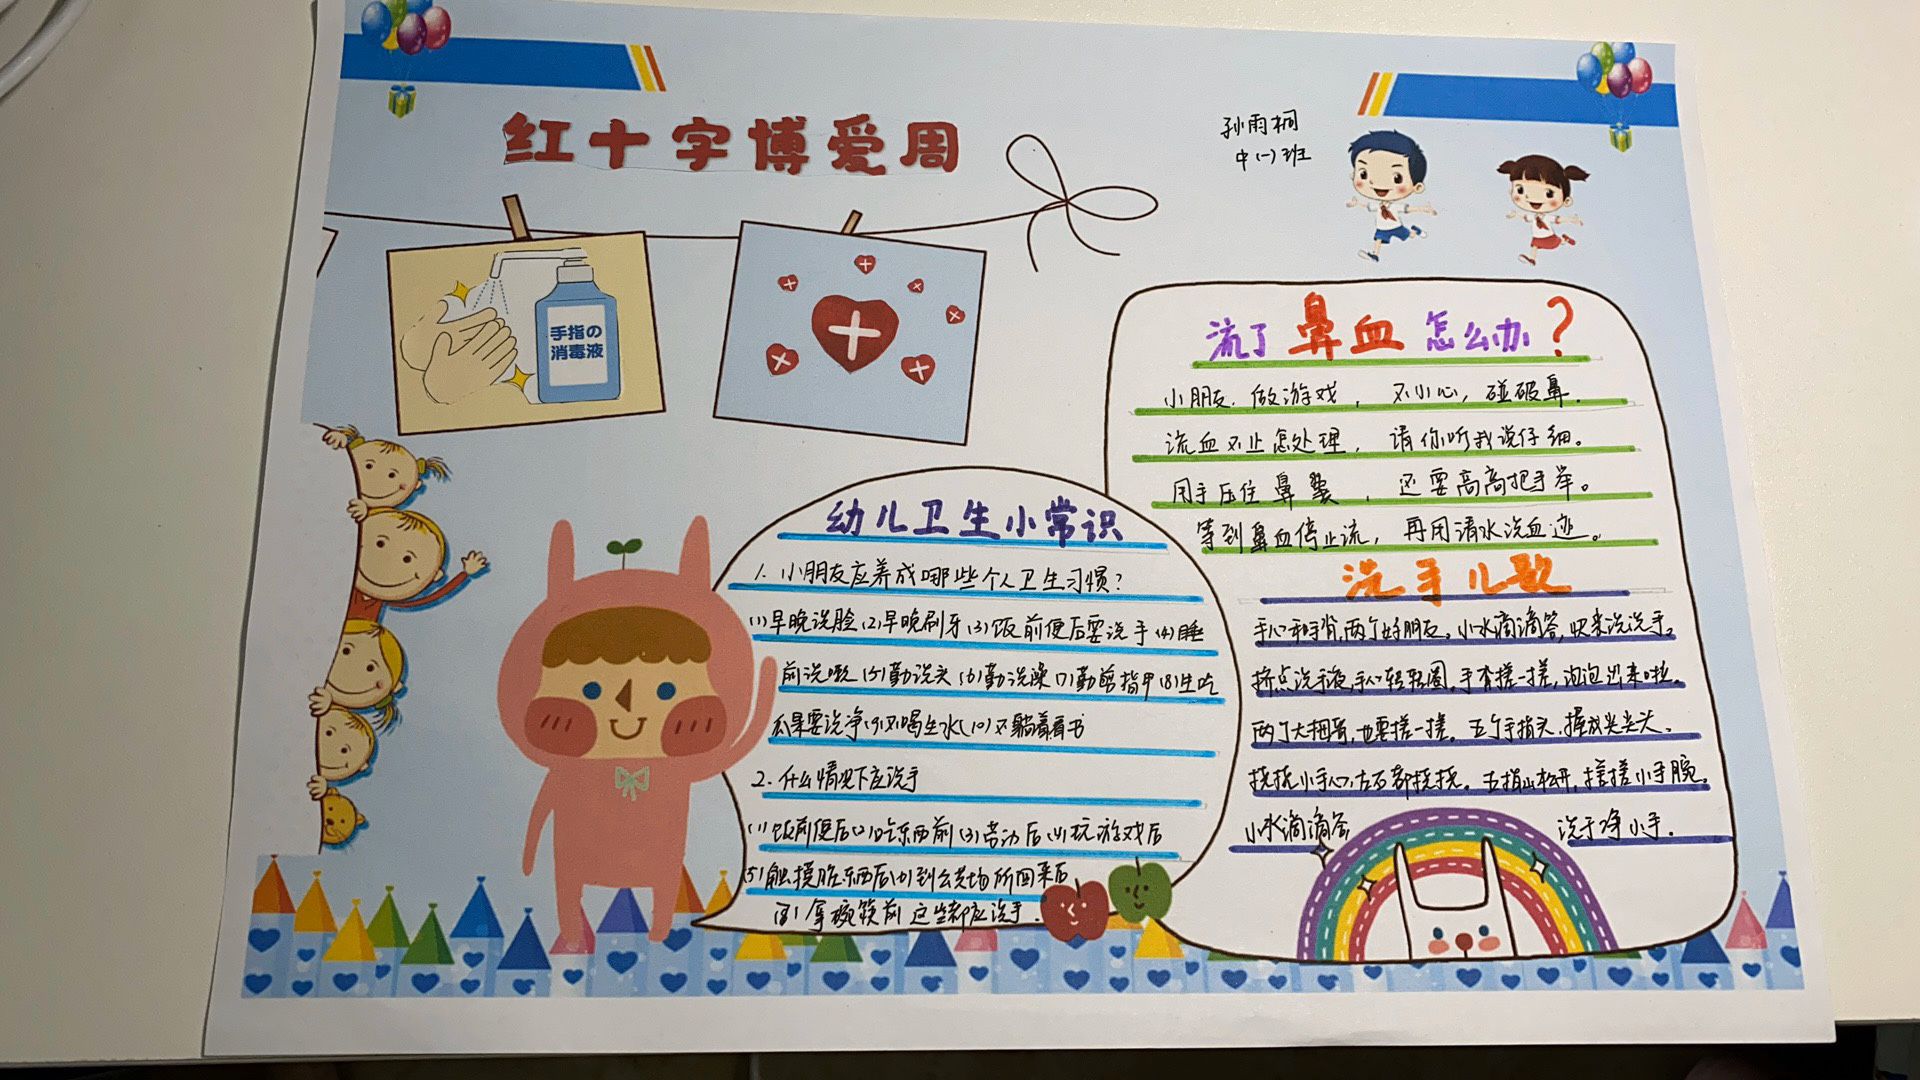 红十字博爱周
孙雨桐
中(一)班
手指の
消毒液
流了鼻血怎么办?
小朋友.做游戏,不小心,碰破鼻.
流血不止怎处理,请你听我说仔细。
用手压住鼻翼,还要高高把手举。
等到鼻血停止流,再用清水洗血迹。
洗手儿歌
手心手背,两个好朋友。小水滴滴答,快来洗洗手。
挤点洗手液,手心转转圈。手背搓一搓,泡泡出来啦。
两个大拇哥,也要搓一搓。五个手指头,握成尖尖头。
挠挠小手心,左右都挠挠。五指山松开,搓搓小手腕。
小水滴滴答 洗干净小手.
幼儿卫生小常识
1.小朋友应养成哪些个人卫生习惯?
(1)早晚洗脸(2)早晚刷牙(3)饭前便后要洗手(4)睡
前洗漱(5)勤洗头(6)勤洗澡(7)勤剪指甲(8)生吃
瓜果要洗净(9)不喝生水(10)不躺着看书
2.什么情况下应洗手
(1)饭前便后(2)吃东西前(3)劳动后(4)玩游戏后
(5)触摸脏东西后(6)到公共场所回来后
拿碗筷前 这些都应洗手.